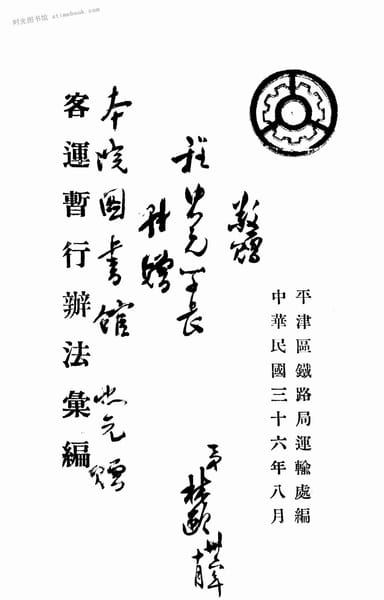 时光图书馆 atimebook.com
平津區鐵路局運輸處編
中華民國三十六年八月
敬贈
學長
弟
卅六年
十月
本院图書館
客運暫行辦法彙編